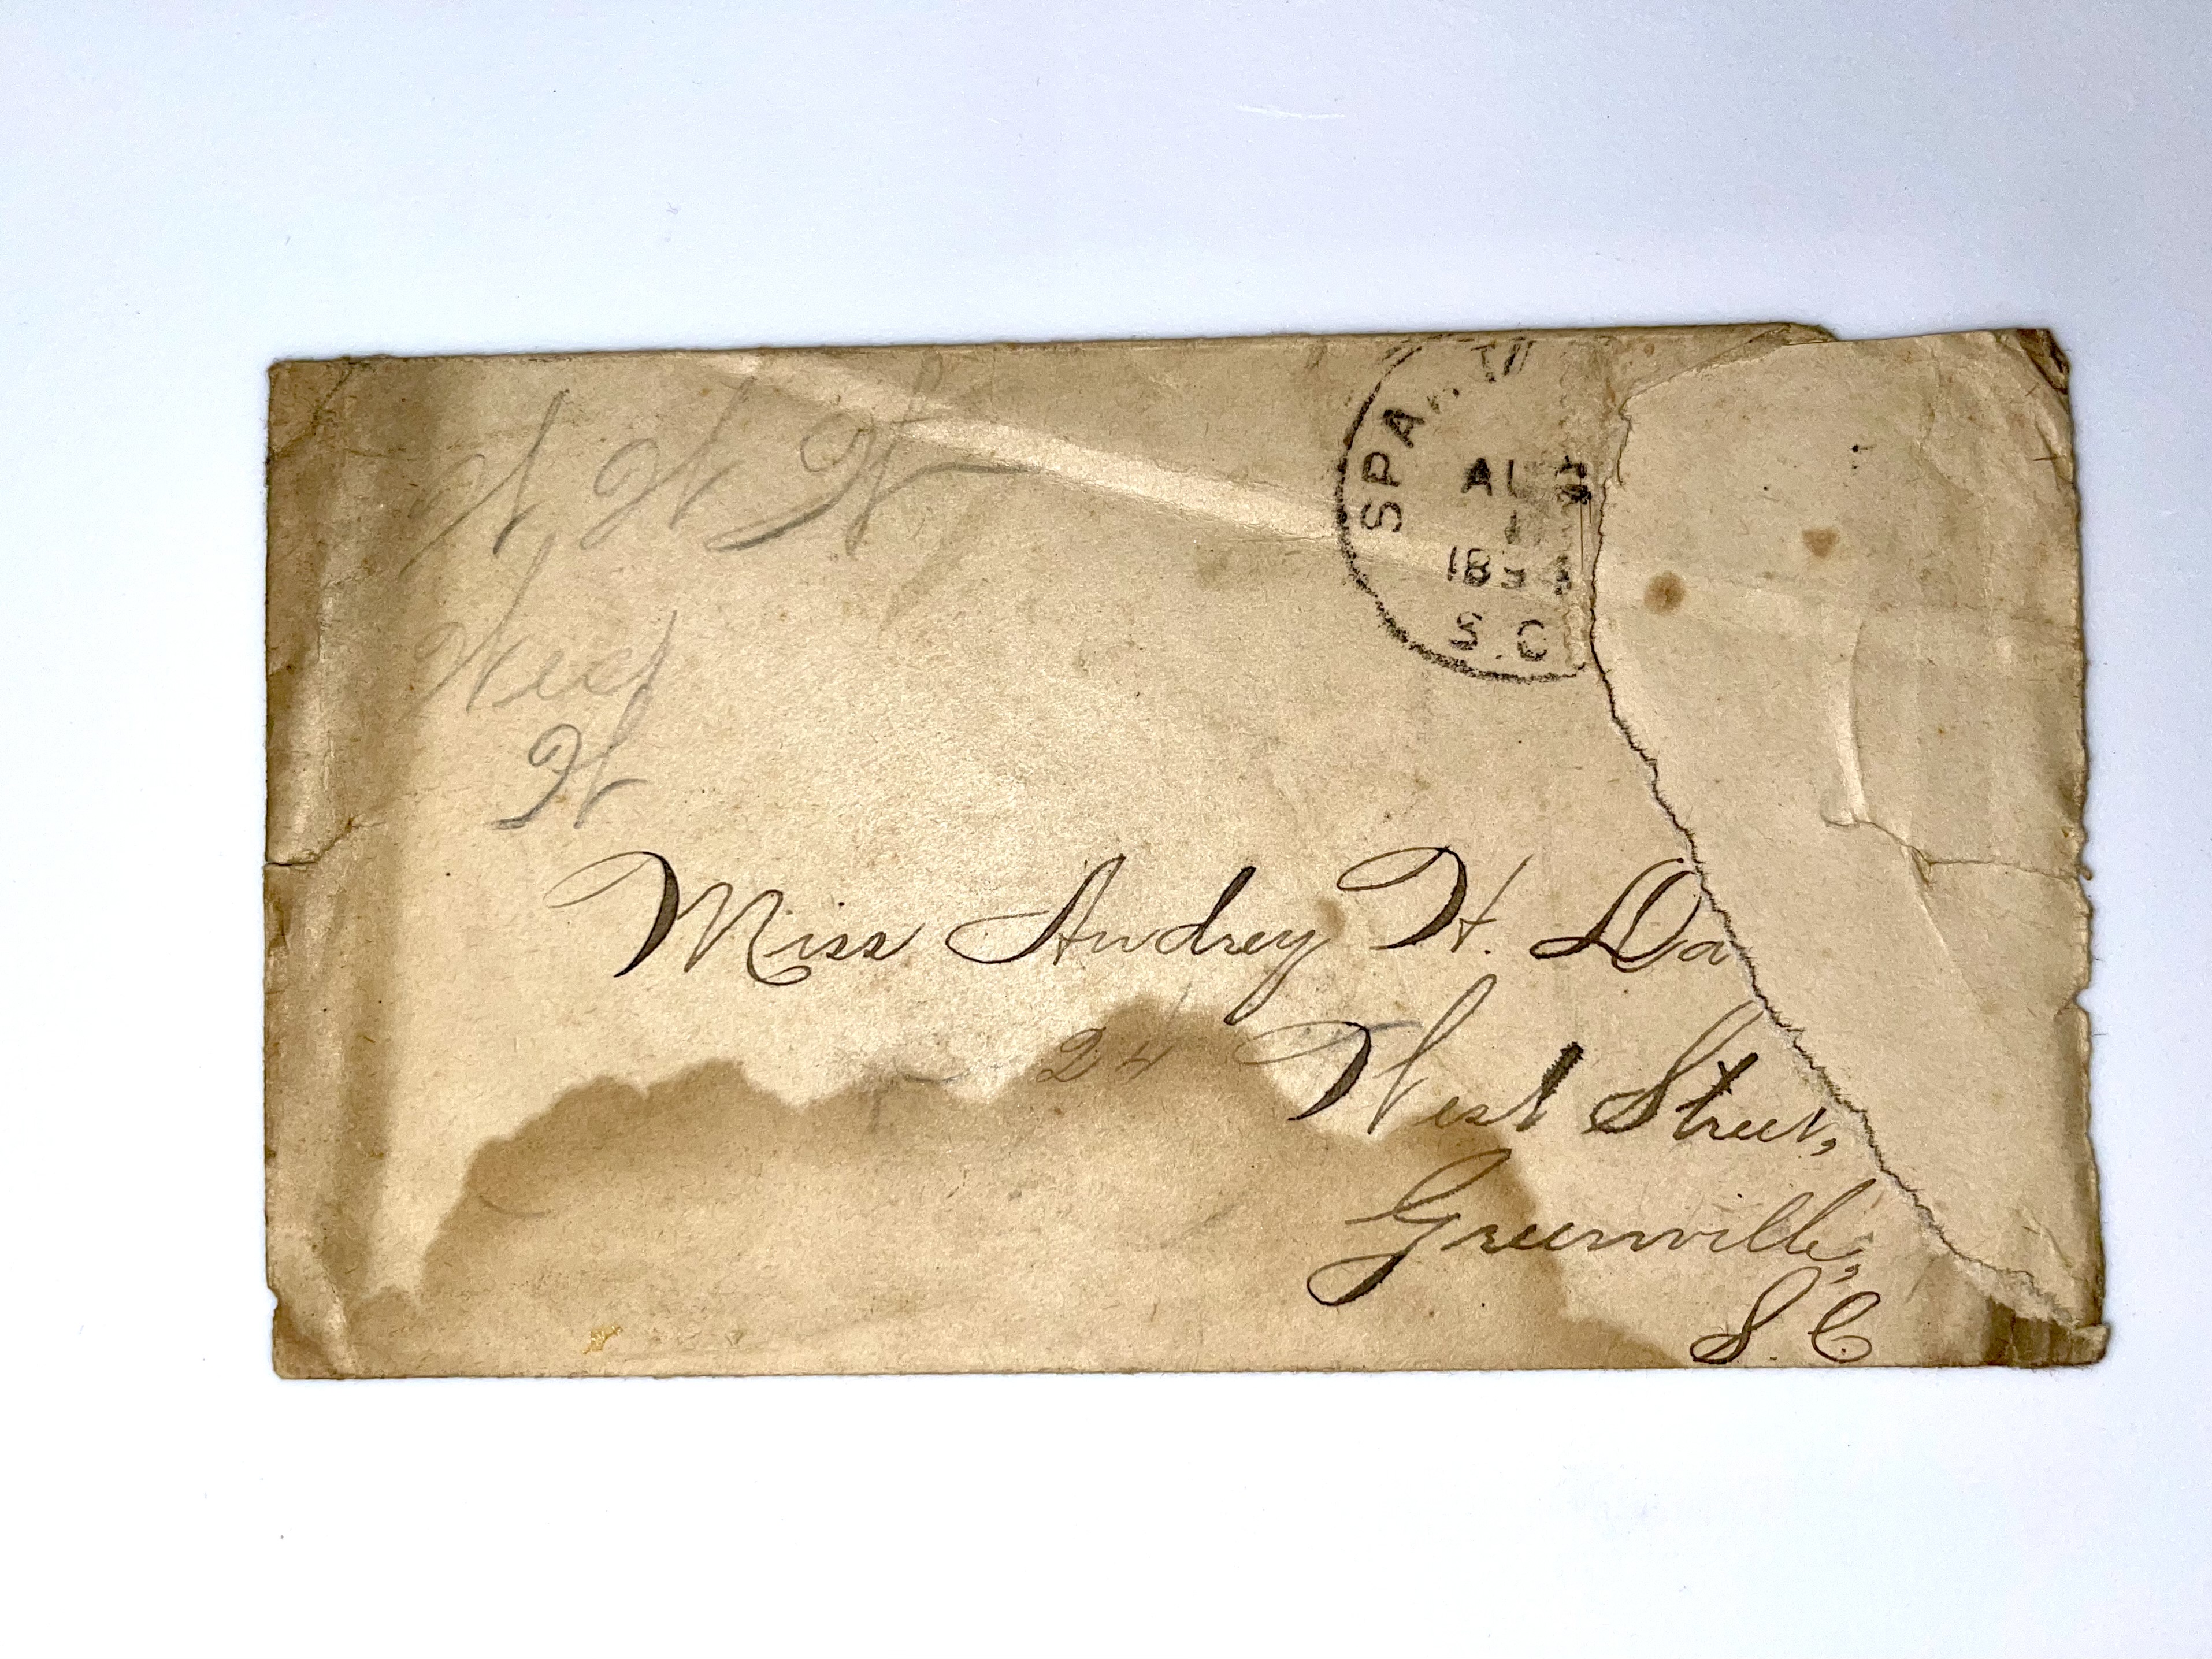 SPA
AUG
1
189
S.C
H
Miss Audrey H. Da
24 West Street,
Greenville,
S.C.